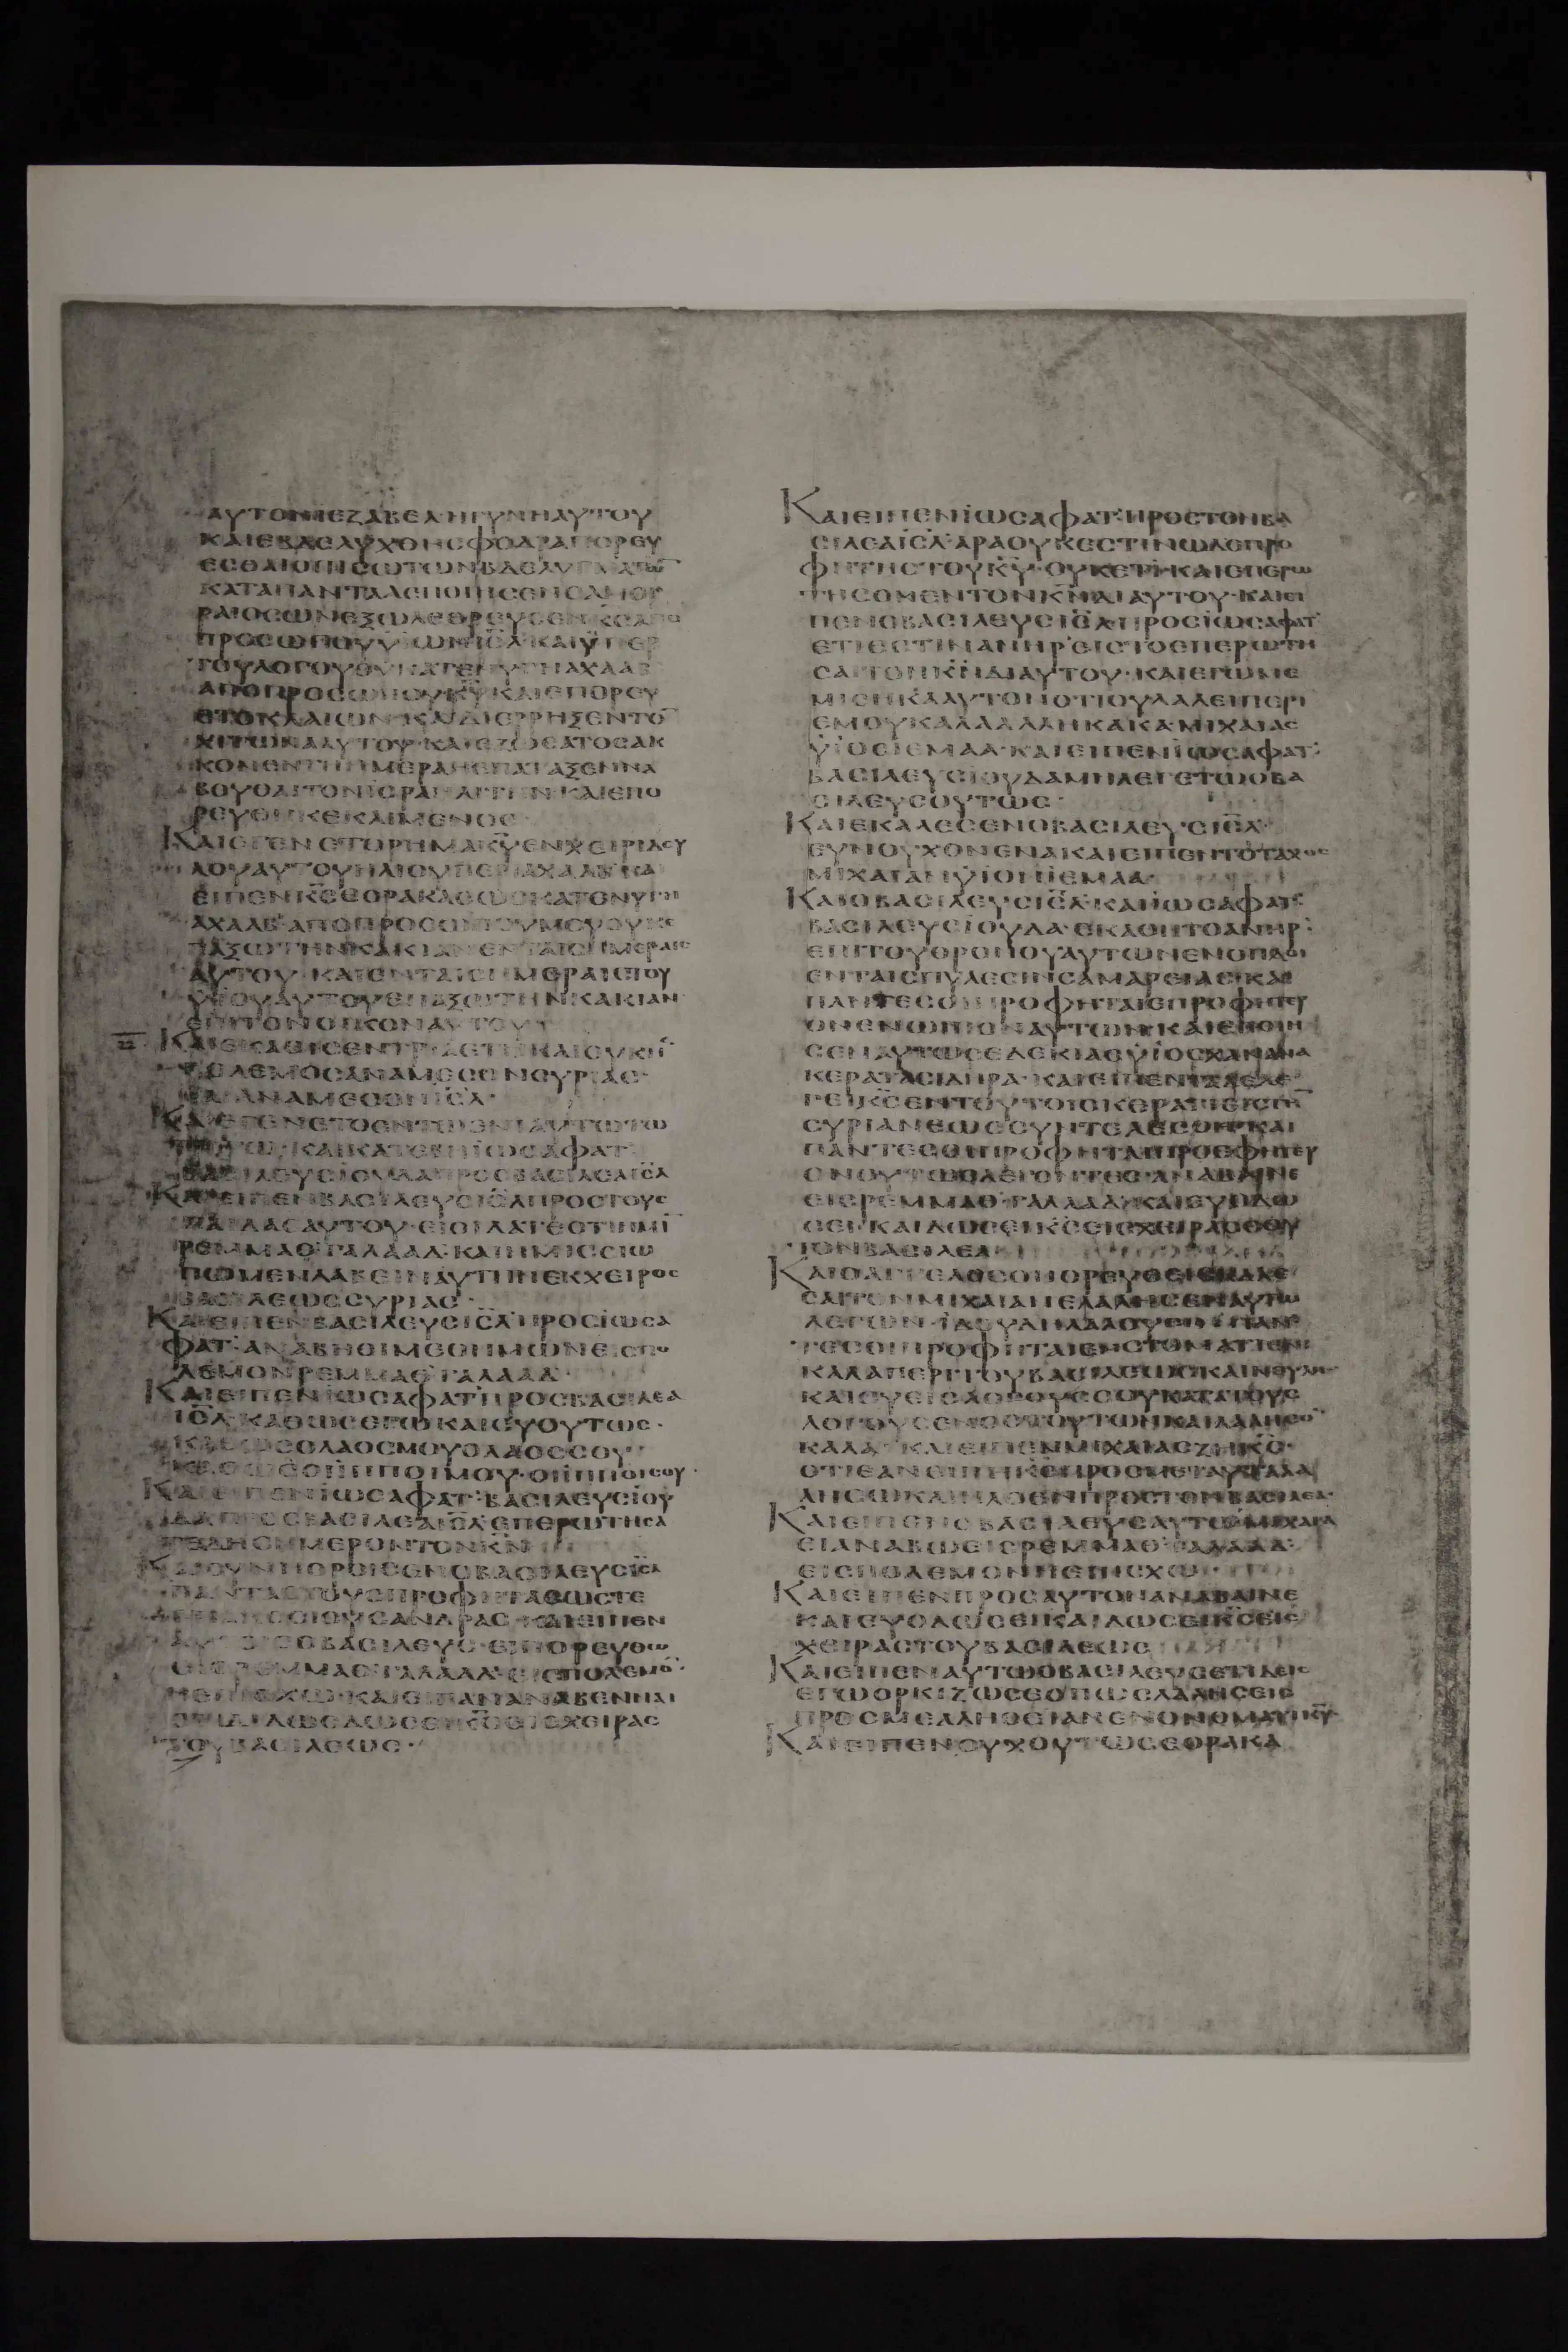 ΑΥΤΟΝΙΕΖΑΒΕΛΗΓΥΝΗΑΥΤΟΥ
ΚΑΙΕΒΔΕΛΥΧΘΗϹΦΟΔΡΑΠΟΡΕΥ
ΕϹΘΑΙΟΠΙϹΩΤΩΝΒΔΕΛΥΓΜΑΤΩ̅
ΚΑΤΑΠΑΝΤΑΑΕΠΟΙΗϹΕΝΟΑΜΟΡ
ΡΑΙΟϹΩΝΕΞΩΛΕΘΡΕΥϹΕΝΚ̅Ϲ̅ΑΠΟ
ΠΡΟϹΩΠΟΥΫΙΩΝΙ̅Ϲ̅Λ̅·ΚΑΙΫΠΕΡ
ΤΟΥΛΟΓΟΥ ΚΑΤΕΝΥΓΗΑΧΑΑΒ
ΑΠΟΠΡΟϹΩΠΟΥΚ̅Υ̅·ΚΑΙΕΠΟΡΕΥ
ΕΤΟΚΛΑΙΩΝ·ΚΑΙΔΙΕΡΡΗΞΕΝΤΟ̅
ΧΙΤΩΝΑΑΥΤΟΥ·ΚΑΙΕΖΩϹΑΤΟϹΑΚ
ΚΟΝΕΝΤΗΗΜΕΡΑΗΕΠΑΤΑΞΕΝΝΑ
ΒΟΥΘΑΙΤΟΝΙϹΡΑΗΛΙΤΗΝ·ΚΑΙΕΠΟ
ΡΕΥΘΗΚΕΚΛΙΜΕΝΟϹ·
ΚΑΙΕΓΕΝΕΤΟΡΗΜΑΚ̅Υ̅ΕΝΧΕΙΡΙΔΟΥ
ΛΟΥΑΥΤΟΥΗΛΙΟΥΠΕΡΙΑΧΑΑΒ·ΚΑΙ
ΕΙΠΕΝΚ̅Ϲ̅ΕΟΡΑΚΑϹΩϹΚΑΤΕΝΥΓΗ
ΑΧΑΑΒ·ΑΠΟΠΡΟϹΩΠΟΥΜΟΥΟΥΚΕ
ΠΑΞΩΤΗΝΚΑΚΙΑΝΕΝΤΑΙϹΗΜΕΡΑΙϹ
ΑΥΤΟΥ·ΚΑΙΕΝΤΑΙϹΗΜΕΡΑΙϹΤΟΥ
ΫΙΟΥΑΥΤΟΥΕΠΑΞΩΤΗΝΚΑΚΙΑΝ
ΕΠΙΤΟΝΟΙΚΟΝΑΥΤΟΥ
ΚΑΙΕΚΑΘΙϹΕΝΤΡΙΑΕΤΗΚΑΙΟΥΚΗ̅
ΠΟΛΕΜΟϹΑΝΑΜΕϹΟΝϹΥΡΙΑϹ·
ΚΑΙΑΝΑΜΕϹΟΝΙ̅Ϲ̅Λ̅·
ΚΑΙΕΓΕΝΕΤΟΕΝΤΩΕΝΙΑΥΤΩΤΩ
ΤΡΙΤΩ·ΚΑΙΚΑΤΕΒΗΪΩϹΑΦΑΤ·
ΒΑϹΙΛΕΥϹΪΟΥΔΑΠΡΟϹΒΑϹΙΛΕΑΙ̅Ϲ̅Λ̅
ΚΑΙΕΙΠΕΝΒΑϹΙΛΕΥϹΙ̅Ϲ̅Λ̅ΠΡΟϹΤΟΥϹ
ΠΑΙΔΑϹΑΥΤΟΥ·ΕΙΟΙΔΑΤΕΟΤΙΗΜΙ̅
ΡΕΜΜΑΘ·ΓΑΛΑΑΔ·ΚΑΙΗΜΙϹϹΙΩ
ΠΩΜΕΝΛΑΒΕΙΝΑΥΤΗΝΕΚΧΕΙΡΟϹ
ΒΑϹΙΛΕΩϹϹΥΡΙΑϹ·
ΚΑΙΕΙΠΕΝΒΑϹΙΛΕΥϹΙ̅Ϲ̅Λ̅ΠΡΟϹΪΩϹΑ
ΦΑΤ·ΑΝΑΒΗΘΙΜΕΘΗΜΩΝΕΙϹΠΟ
ΛΕΜΟΝΡΕΜΜΑΘΓΑΛΑΑΔ·
ΚΑΙΕΙΠΕΝΪΩϹΑΦΑΤΠΡΟϹΒΑϹΙΛΕΑ
Ι̅Ϲ̅Λ̅·ΚΑΘΩϹΕΓΩΚΑΙϹΥΟΥΤΩϹ·
ΚΑΘΩϹΟΛΑΟϹΜΟΥΟΛΑΟϹϹΟΥ·
ΚΑΘΩϹΟΙΪΠΠΟΙΜΟΥ·ΟΙΪΠΠΟΙϹΟΥ·
ΚΑΙΕΙΠΕΝΪΩϹΑΦΑΤ·ΒΑϹΙΛΕΥϹΪΟΥ
ΔΑΠΡΟϹΒΑϹΙΛΕΑΙ̅Ϲ̅Λ̅ΕΠΕΡΩΤΗϹΑ
ΤΕΔΗϹΗΜΕΡΟΝΤΟΝΚ̅Ν̅
ΚΑΙϹΥΝΗΘΡΟΙϹΕΝΟΒΑϹΙΛΕΥϹΙ̅Ϲ̅Λ̅
ΠΑΝΤΑϹΤΟΥϹΠΡΟΦΗΤΑϹΩϹΤΕ
ΤΕΤΡΑΚΟϹΙΟΥϹΑΝΔΡΑϹ·ΚΑΙΕΙΠΕΝ
ΑΥΤΟΙϹΟΒΑϹΙΛΕΥϹ·ΕΙΠΟΡΕΥΘΩ
ΕΙϹΡΕΜΜΑΘ·ΓΑΛΑΑΔ·ΕΙϹΠΟΛΕΜΟ̅·
ΗΕΠΙϹΧΩ·ΚΑΙΕΙΠΑΝΑΝΑΒΕΝΝΑΙ
ΔΩϹΕΙΚ̅Ϲ̅ΕΙϹΧΕΙΡΑϹ
ΤΟΥΒΑϹΙΛΕΩϹ·
ΚΑΙΕΙΠΕΝΪΩϹΑΦΑΤ·ΠΡΟϹΤΟΝΒΑ
ϹΙΛΕΑΙ̅Ϲ̅Λ̅·ΑΡΑΟΥΚΕϹΤΙΝΩΔΕΠΡΟ
ΦΗΤΗϹΤΟΥΚ̅Υ̅·ΟΥΚΕΤΙ·ΚΑΙΕΠΕΡΩ
ΤΗϹΟΜΕΝΤΟΝΚ̅Ν̅ΔΙΑΥΤΟΥ·ΚΑΙΕΙ
ΠΕΝΟΒΑϹΙΛΕΥϹΙ̅Ϲ̅Λ̅·ΠΡΟϹΪΩϹΑΦΑΤ
ΕΤΙΕϹΤΙΝΑΝΗΡ·ΕΙϹΤΟΕΠΕΡΩΤΗ
ϹΑΙΤΟΝΚ̅Ν̅ΔΙΑΥΤΟΥ·ΚΑΙΕΓΩΜΕ
ΜΙϹΗΚΑΑΥΤΟΝΟΤΙΟΥΛΑΛΕΙΠΕΡΙ
ΕΜΟΥΚΑΛΑΑΛΛΗΚΑΚΑ·ΜΙΧΑΙΑϹ
ΫΙΟϹΙΕΜΑΑ·ΚΑΙΕΙΠΕΝΪΩϹΑΦΑΤ·
ΒΑϹΙΛΕΥϹΪΟΥΔΑΜΗΛΕΓΕΤΩΟΒΑ
ϹΙΛΕΥϹΟΥΤΩϹ·
ΚΑΙΕΚΑΛΕϹΕΝΟΒΑϹΙΛΕΥϹΙ̅Ϲ̅Λ̅·
ΕΥΝΟΥΧΟΝΕΝΑΚΑΙΕΙΠΕΝΤΟΤΑΧΟϹ
ΜΙΧΑΙΑΝΫΙΟΝΪΕΜΑΑ·
ΚΑΙΟΒΑϹΙΛΕΥϹΙ̅Ϲ̅Λ̅·ΚΑΙΪΩϹΑΦΑΤ·
ΒΑϹΙΛΕΥϹΪΟΥΔΑ·ΕΚΑΘΗΤΟΑΝΗΡ·
ΕΠΙΤΟΥΘΡΟΝΟΥΑΥΤΩΝΕΝΟΠΛΟΙ
ΕΝΤΑΙϹΠΥΛΕϹΙΝϹΑΜΑΡΕΙΑϹ·ΚΑΙ
ΠΑΝΤΕϹΟΙΠΡΟΦΗΤΑΙΕΠΡΟΦΗΤΕΥ
ΟΝΕΝΩΠΙΟΝΑΥΤΩΝ·ΚΑΙΕΠΟΙΗ
ϹΕΝΑΥΤΩϹΕΔΕΚΙΑϹΫΙΟϹΧΑΝΑΝΑ
ΚΕΡΑΤΑϹΙΔΗΡΑ·ΚΑΙΕΙΠΕΝΤΑΔΕΛΕ
ΓΕΙΚ̅Ϲ̅ΕΝΤΟΥΤΟΙϹΚΕΡΑΤΙΕΙϹΤΗ̅
ϹΥΡΙΑΝΕΩϹϹΥΝΤΕΛΕϹΘΗ·ΚΑΙ
ΠΑΝΤΕϹΟΙΠΡΟΦΗΤΑΙΕΠΡΟΦΗΤΕΥ
ΟΝΟΥΤΩϹΛΕΓΟΝΤΕϹ·ΑΝΑΒΑΙΝΕ
ΕΙϹΡΕΜΜΑΘ·ΓΑΛΑΑΔ·ΚΑΙΕΥΟΔΩ
ϹΕΙ·ΚΑΙΔΩϹΕΙΚ̅Ϲ̅ΕΙϹΧΕΙΡΑϹϹΟΥ
ΤΟΝΒΑϹΙΛΕΑ
ΚΑΙΟΑΓΓΕΛΟϹΟΠΟΡΕΥΘΕΙϹΚΑΛΕ
ϹΑΙΤΟΝΜΙΧΑΙΑΝΕΛΑΛΗϹΕΝΑΥΤΩ
ΛΕΓΩΝ·ΪΔΟΥΔΗΛΑΛΟΥϹΙΝΠΑΝ
ΤΕϹΟΙΠΡΟΦΗΤΑΙΕΝϹΤΟΜΑΤΙΕΝΙ
ΚΑΛΑΠΕΡΙΤΟΥΒΑϹΙΛΕΩϹ·ΚΑΙΝΟΥΔΗ
ΚΑΙϹΥΕΙϹΛΟΓΟΥϹϹΟΥΚΑΤΑΤΟΥϹ
ΛΟΓΟΥϹΕΝΟϹΤΟΥΤΩΝΚΑΙΛΑΛΗϹΟ̅
ΚΑΛΑ·ΚΑΙΕΙΠΕΝΜΙΧΑΙΑϹΖΗΚ̅Ϲ̅·
ΟΤΙΕΑΝΕΙΠΗΚ̅Ϲ̅ΠΡΟϹΜΕΤΑΥΤΑΛΑ
ΛΗϹΩΚΑΙΗΛΘΕΝΠΡΟϹΤΟΝΒΑϹΙΛΕΑ·
ΚΑΙΕΙΠΕΝΟΒΑϹΙΛΕΥϹΑΥΤΩΜΙΧΑΙΑ
ΕΙΑΝΑΒΩΕΙϹΡΕΜΜΑΘ·ΓΑΛΑΑΔ·
ΕΙϹΠΟΛΕΜΟΝΗΕΠΙϹΧΩ
ΚΑΙΕΙΠΕΝΠΡΟϹΑΥΤΟΝΑΝΑΒΑΙΝΕ
ΚΑΙΕΥΟΔΩϹΕΙΚΑΙΔΩϹΕΙΚ̅Ϲ̅ΕΙϹ
ΧΕΙΡΑϹΤΟΥΒΑϹΙΛΕΩϹ
ΚΑΙΕΙΠΕΝΑΥΤΩΟΒΑϹΙΛΕΥϹΕΤΙΔΕΙϹ
ΕΓΩΟΡΚΙΖΩϹΕΟΠΩϹΛΑΛΗϹΕΙϹ
ΠΡΟϹΜΕΑΛΗΘΕΙΑΝΕΝΟΝΟΜΑΤΙΚ̅Υ̅
ΚΑΙΕΙΠΕΝΟΥΧΟΥΤΩϹΕΟΡΑΚΑ